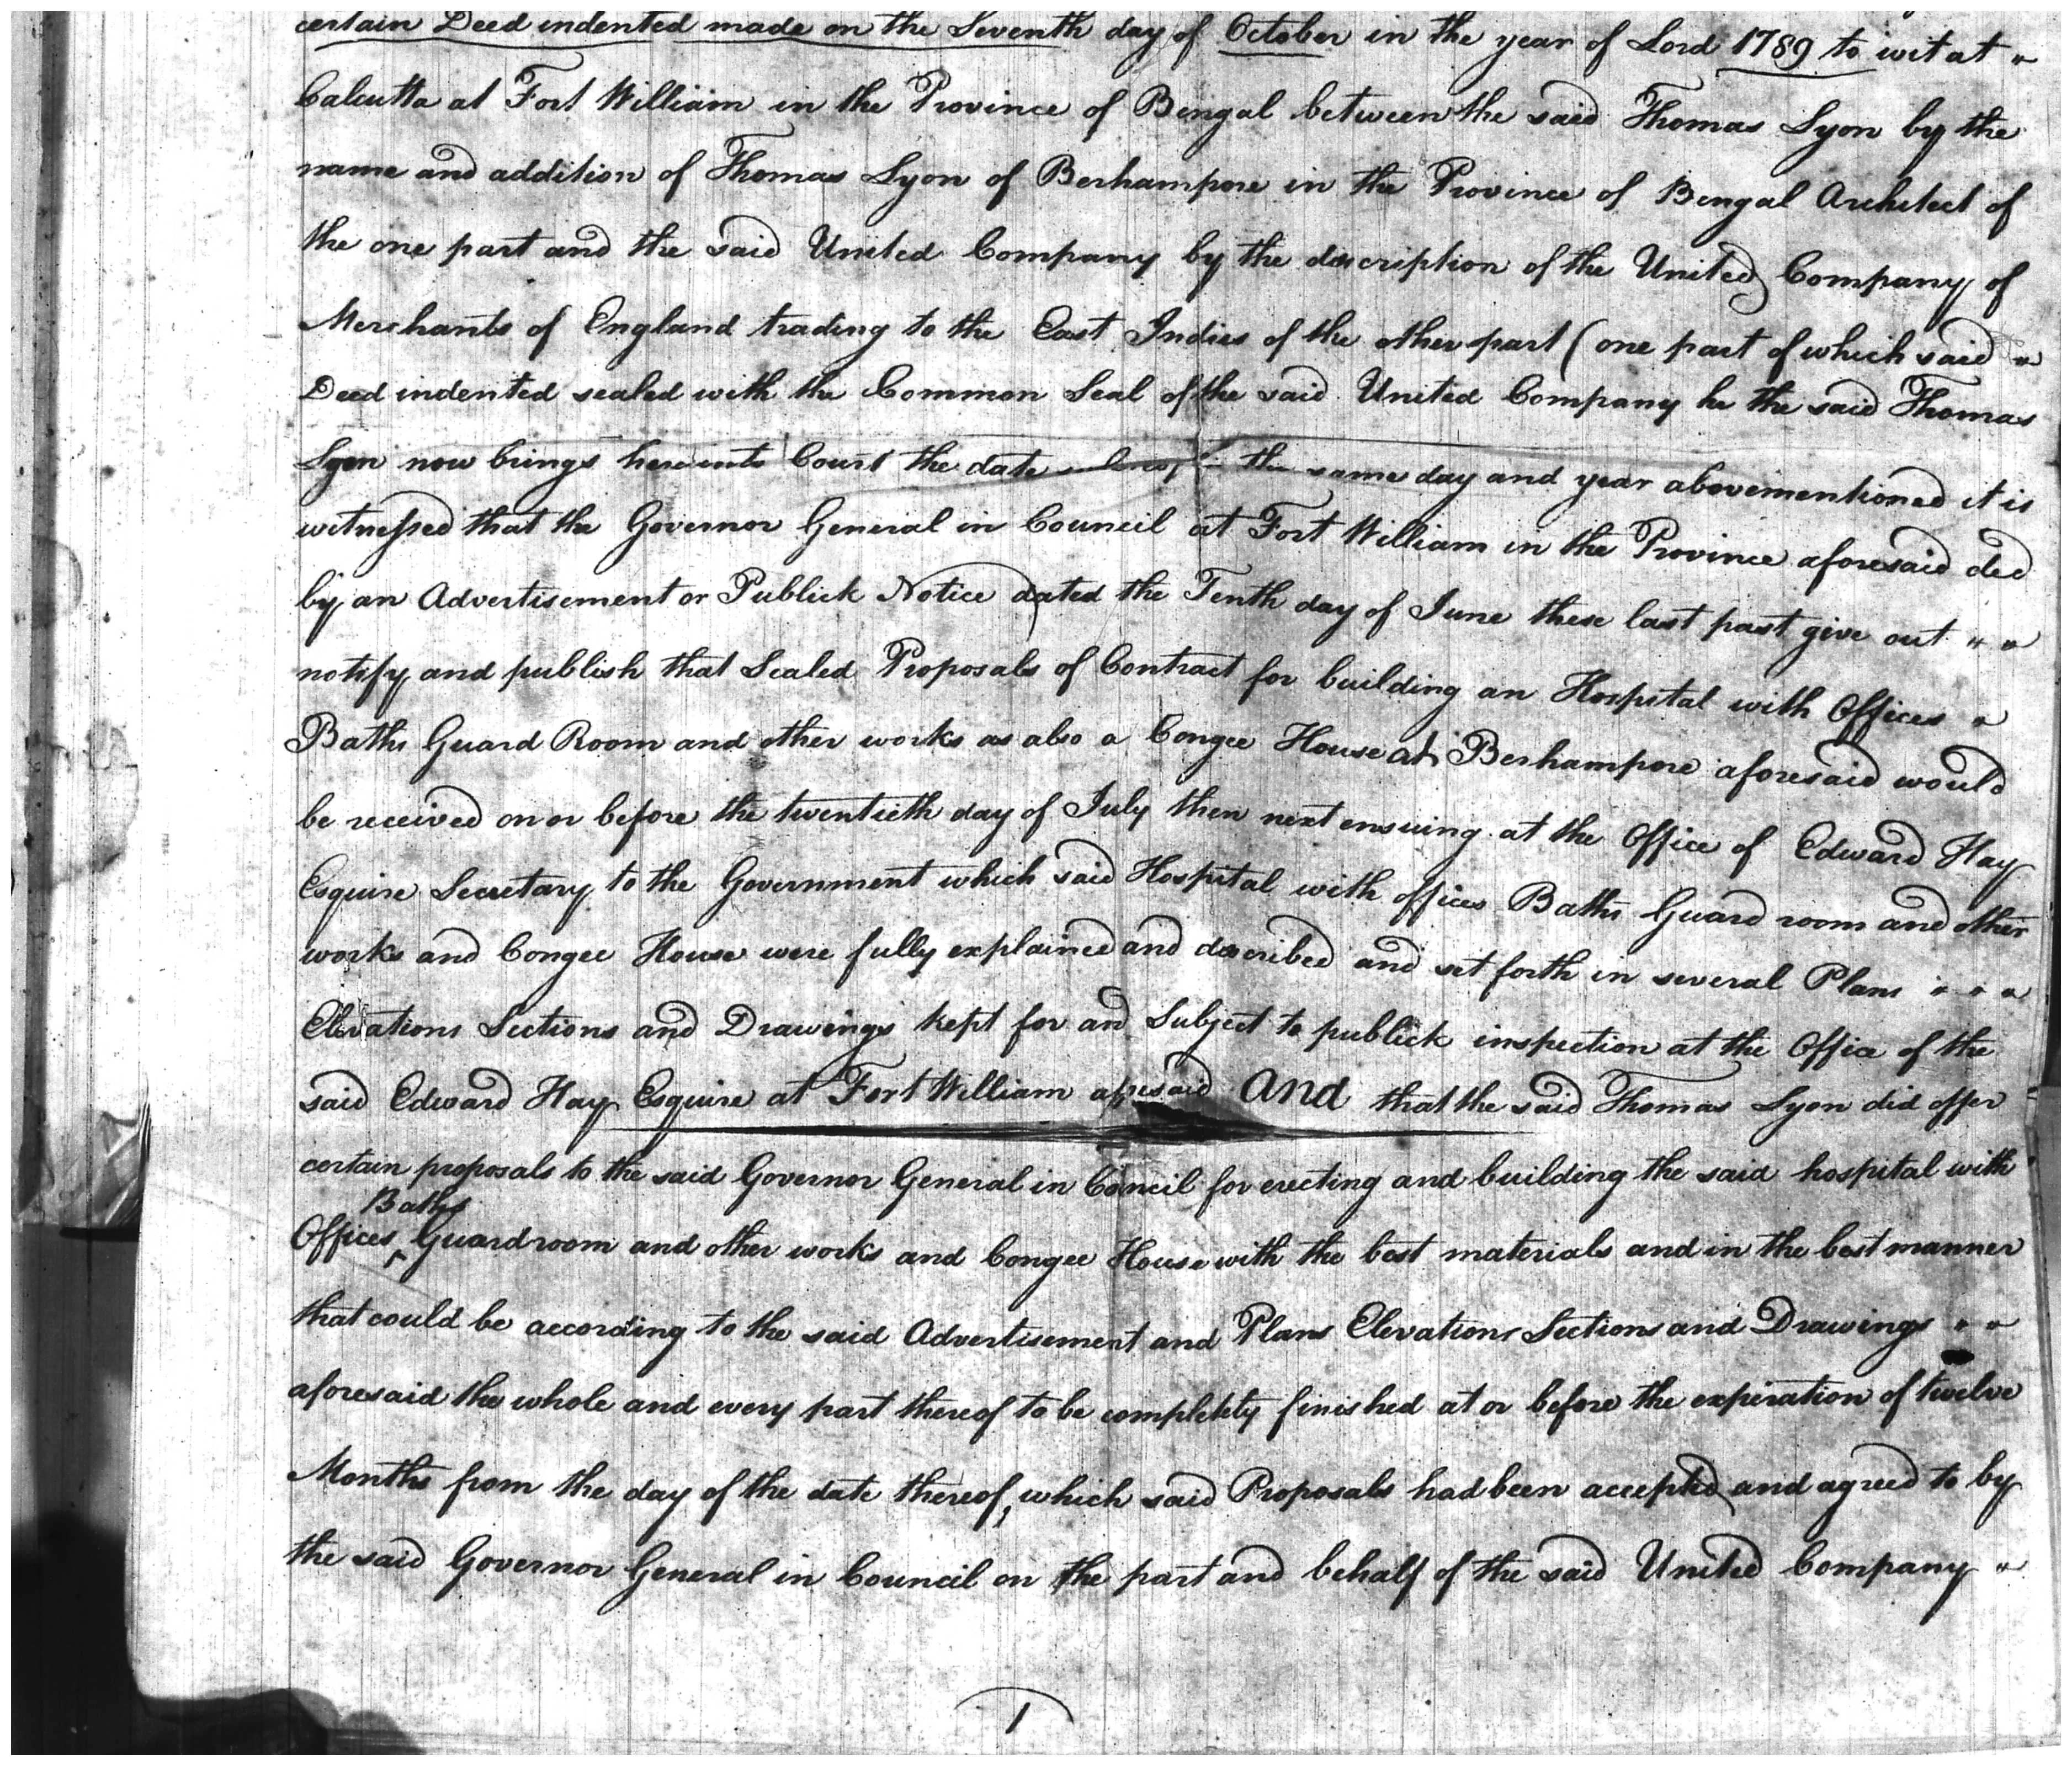 certain Deed indented made on the Seventh day of October in the year of Lord 1789 to wit at "
Calcutta at Fort William in the Province of Bengal between the said Thomas Lyon by the
name and addition of Thomas Lyon of Berhampore in the Province of Bengal Architect of
the one part and the said United Company by the description of the United Company of
Merchants of England trading to the East Indies of the other part (one part of which said "
Deed indented sealed with the Common Seal of the said United Company he the said Thomas
Lyon now brings here into Court the date whereof is the same day and year abovementioned it is
witnessed that the Governor General in Council at Fort William in the Province aforesaid did
by an Advertisement or Publick Notice dated the Tenth day of June these last past give out " "
notify and publish that Sealed Proposals of Contract for building an Hospital with Offices "
Baths Guard Room and other works as also a Congee House at Berhampore aforesaid would
be received on or before the twentieth day of July then next ensuing at the Office of Edward Hay
Esquire Secretary to the Government which said Hospital with offices Baths Guard room and other
works and Congee House were fully explained and described and set forth in several Plans " " "
Elevations Sections and Drawings kept for and Subject to publick inspection at the Office of the
said Edward Hay Esquire at Fort William aforesaid And that the said Thomas Lyon did offer
certain proposals to the said Governor General in Council for erecting and building the said hospital with
Baths
Offices ^ Guardroom and other works and Congee House with the best materials and in the best manner
that could be according to the said Advertisement and Plans Elevations Sections and Drawings " "
aforesaid the whole and every part thereof to be completely finished at or before the expiration of twelve
Months from the day of the date thereof, which said Proposals had been accepted and agreed to by
the said Governor General in Council on the part and behalf of the said United Company "
1